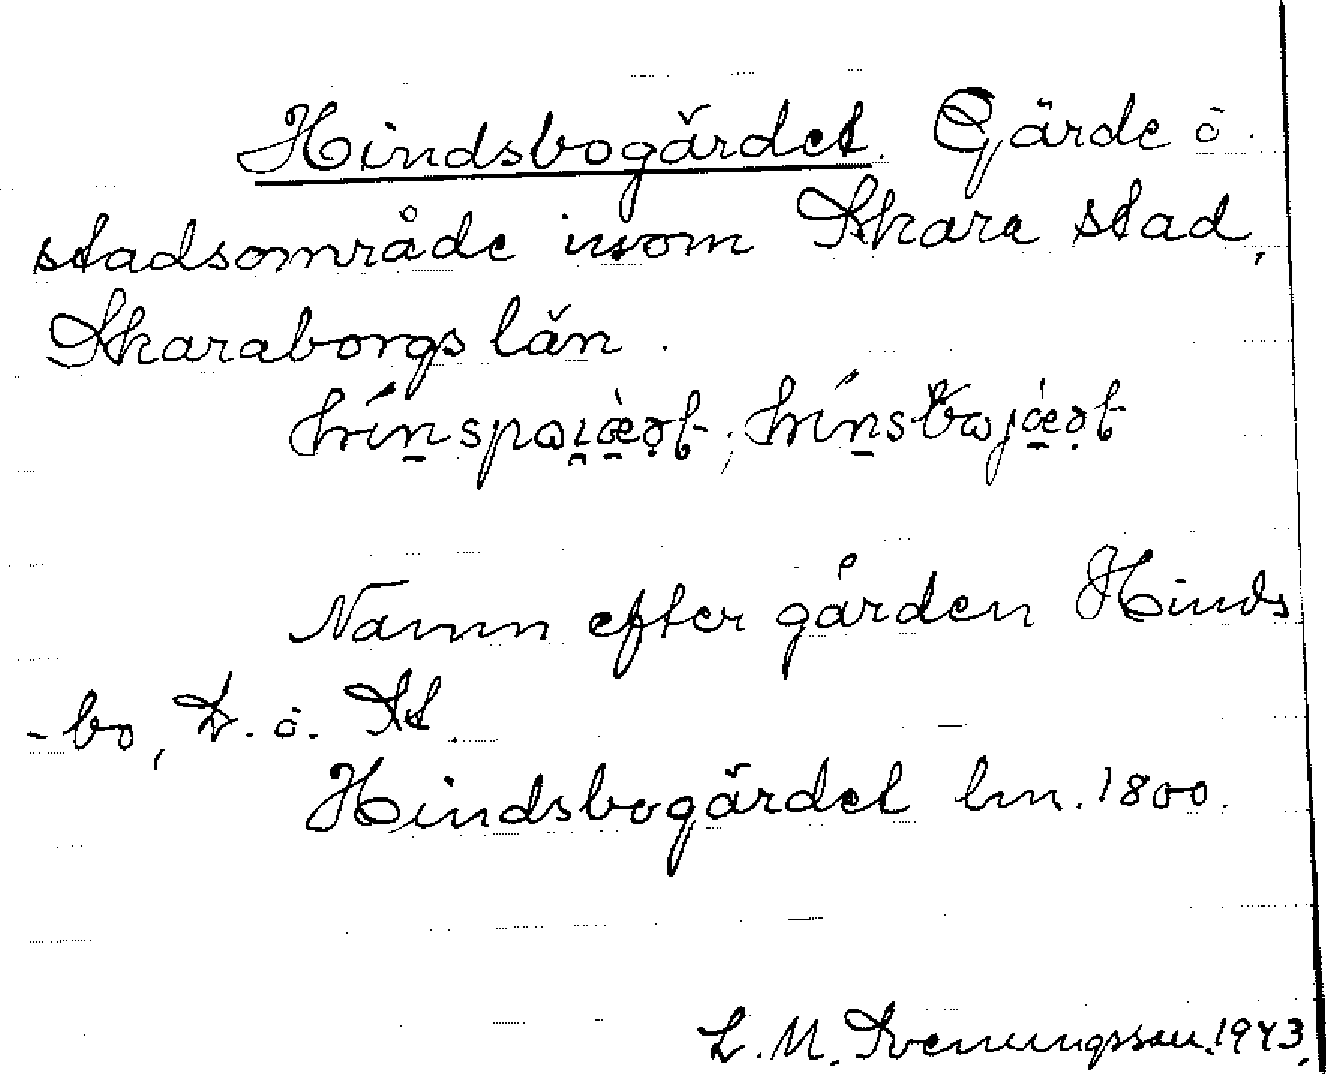 Hindsbogärdet. Gärde ö.
stadsområde inom Skara stad,
Skaraborgs län.
Namn efter gården Hinds
-bo, D. ö. St.
Hindsbogärdet lm. 1800.
L. M. Svenungsson. 1943.